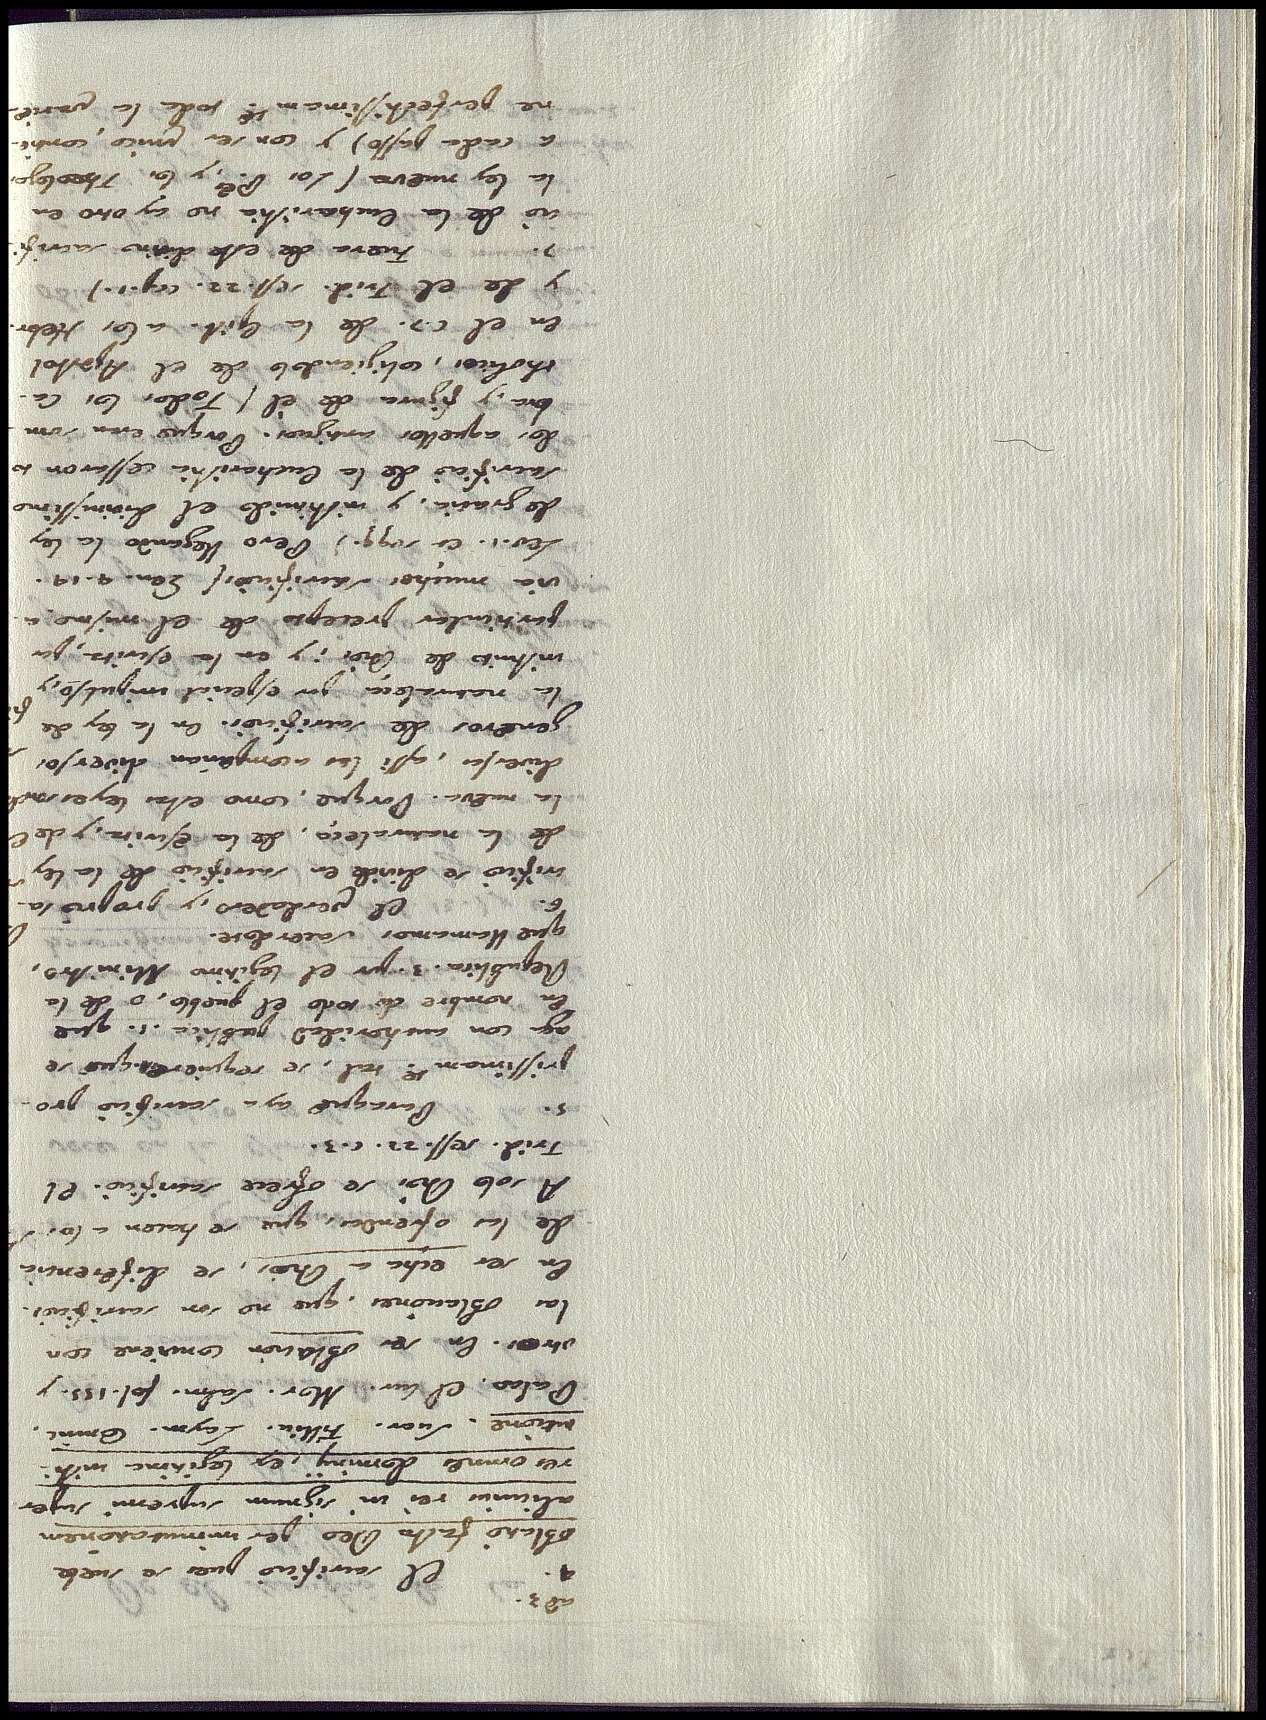 ad 3.
4. El sacrificio pues se suele
oblatio facta Deo per immutationem
alicuius rei in signum supremi super
res omnes dominij, ex legitima insti-
tutione. Suar. Filliu. Laym. Coninc.
Palao. El Cur. Mor. Salm. fol. 155. y
otros. En ser oblacion conviene con
las oblaciones, que no son sacrificios.
En ser echa a Dios, se differencia
de las ofrendas, que se hacen a los
A solo Dios se ofrece sacrificio. El
Trid. sess. 22. c. 3.
5. Paraque aya sacrificio pro-
prissimam.te tal, se requiere que se
aga con authoridad publica. i. que
en nombre de todo el pueblo, o de la
Republica. 3. por el legitimo Ministro,
que llamamos sacerdote.
6. El verdadero, y proprio sa-
crificio se divide en sacrificio de la ley
de la naturaleça, de la escrita, y de
la nueva. Porque, como estas leyes
diversas, assi las acompañan diversos
generos de sacrificios. En la ley de
la naturaleça por especial impulso, y
instinto de Dios; y en la escrita, por
particular precepto de el mismo a-
via muchos sacrificios (Gen. 4. 14.
Lev. 1. et seqq.) Pero llegando la ley
de gracia, y instituido el divinissimo
sacrificio de la Eucharistia cessaron to
dos aquellos antiguos. Porque eran som-
bra, y figura de èl (Todos los Ca-
tholicos, coligiendolo de el Apostol
en el c. 7. de la Epist. a los Hebr.
y de el Trid. sess. 22. cap. 1.)
7. Fuera de este divino sacrifi-
cio de la Eucharistia no ay otro en
la ley nueva (Los P. P. y los Theologos
a cada passo) y con ser unico, contie-
ne perfectissimam.te toda la varie-